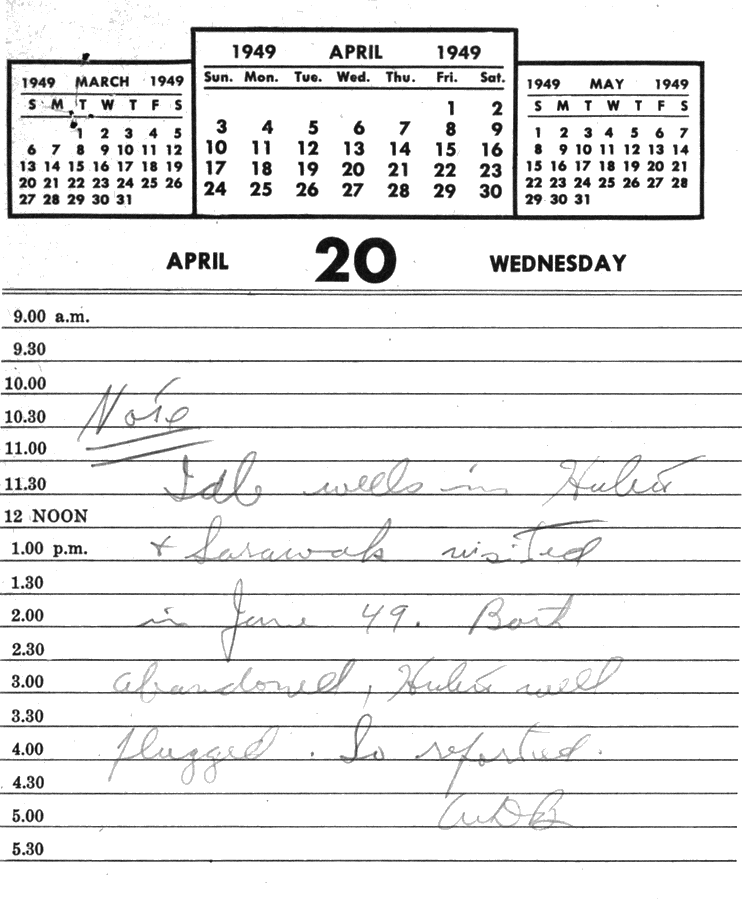 1949 MARCH 1949
S M T W T F S
1 2 3 4 5
6 7 8 9 10 11 12
13 14 15 16 17 18 19
20 21 22 23 24 25 26
27 28 29 30 31
1949 APRIL 1949
Sun. Mon. Tue. Wed. Thu. Fri. Sat.
1 2
3 4 5 6 7 8 9
10 11 12 13 14 15 16
17 18 19 20 21 22 23
24 25 26 27 28 29 30
1949 MAY 1949
S M T W T F S
1 2 3 4 5 6 7
8 9 10 11 12 13 14
15 16 17 18 19 20 21
22 23 24 25 26 27 28
29 30 31
APRIL 20 WEDNESDAY
9.00 a.m.
9.30
10.00
10.30 Note
11.00
11.30 Idle wells in
12 NOON
1.00 p.m. + Sarawak visited
1.30
2.00 in June 49. Both
2.30
3.00 abandoned, well
3.30
4.00 plugged. So reported.
4.30
5.00
5.30